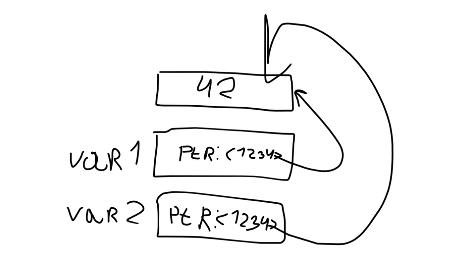 42
var 1 PtR: <1234>
var 2 PtR: <1234>